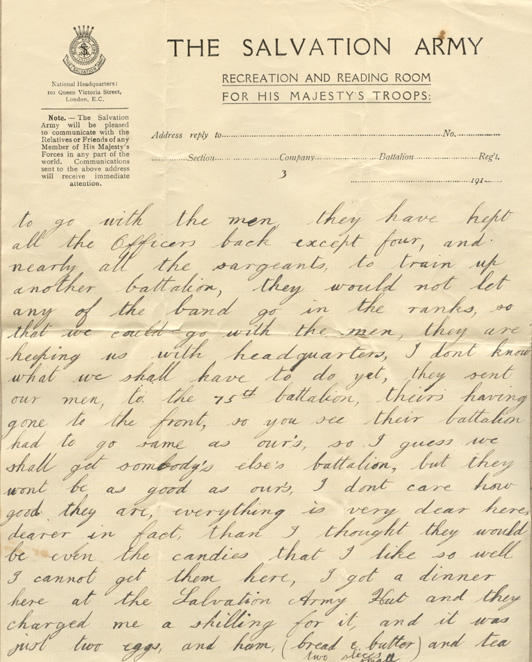 THE SALVATION ARMY
RECREATION AND READING ROOM
FOR HIS MAJESTY'S TROOPS:
THE SALVATION ARMY
National Headquarters:
101 Queen Victoria Street,
London, E.C.
Note. — The Salvation
Army will be pleased
to communicate with the
Relatives or Friends of any
Member of His Majesty's
Forces in any part of the
world. Communications
sent to the above address
will receive immediate
attention.
Address reply to No.
Section Company Battalion Reg't.
3
191
to go with the men, they have kept
all the Officers back except four, and
nearly all the sargeants, to train up
another battalion, they would not let
any of the band go in the ranks, so
that we could go with the men, they are
keeping us with headquarters, I dont know
what we shall have to do yet, they sent
our men, to the 75th battalion, theirs having
gone to the front, so you see their battalion
had to go same as our's, so I guess we
shall get somebody's else's battalion, but they
wont be as good as our's, I dont care how
good they are, everything is very dear here,
dearer in fact, than I thought they would
be even the candies that I like so well
I cannot get them here, I got a dinner
here at the Salvation Army Hut and they
charged me a shilling for it, and it was
just two eggs, and ham, (bread & butter) and tea
two slices